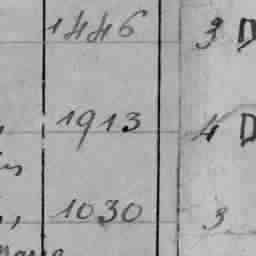 1446 3 D
1913 4 D
1030 3